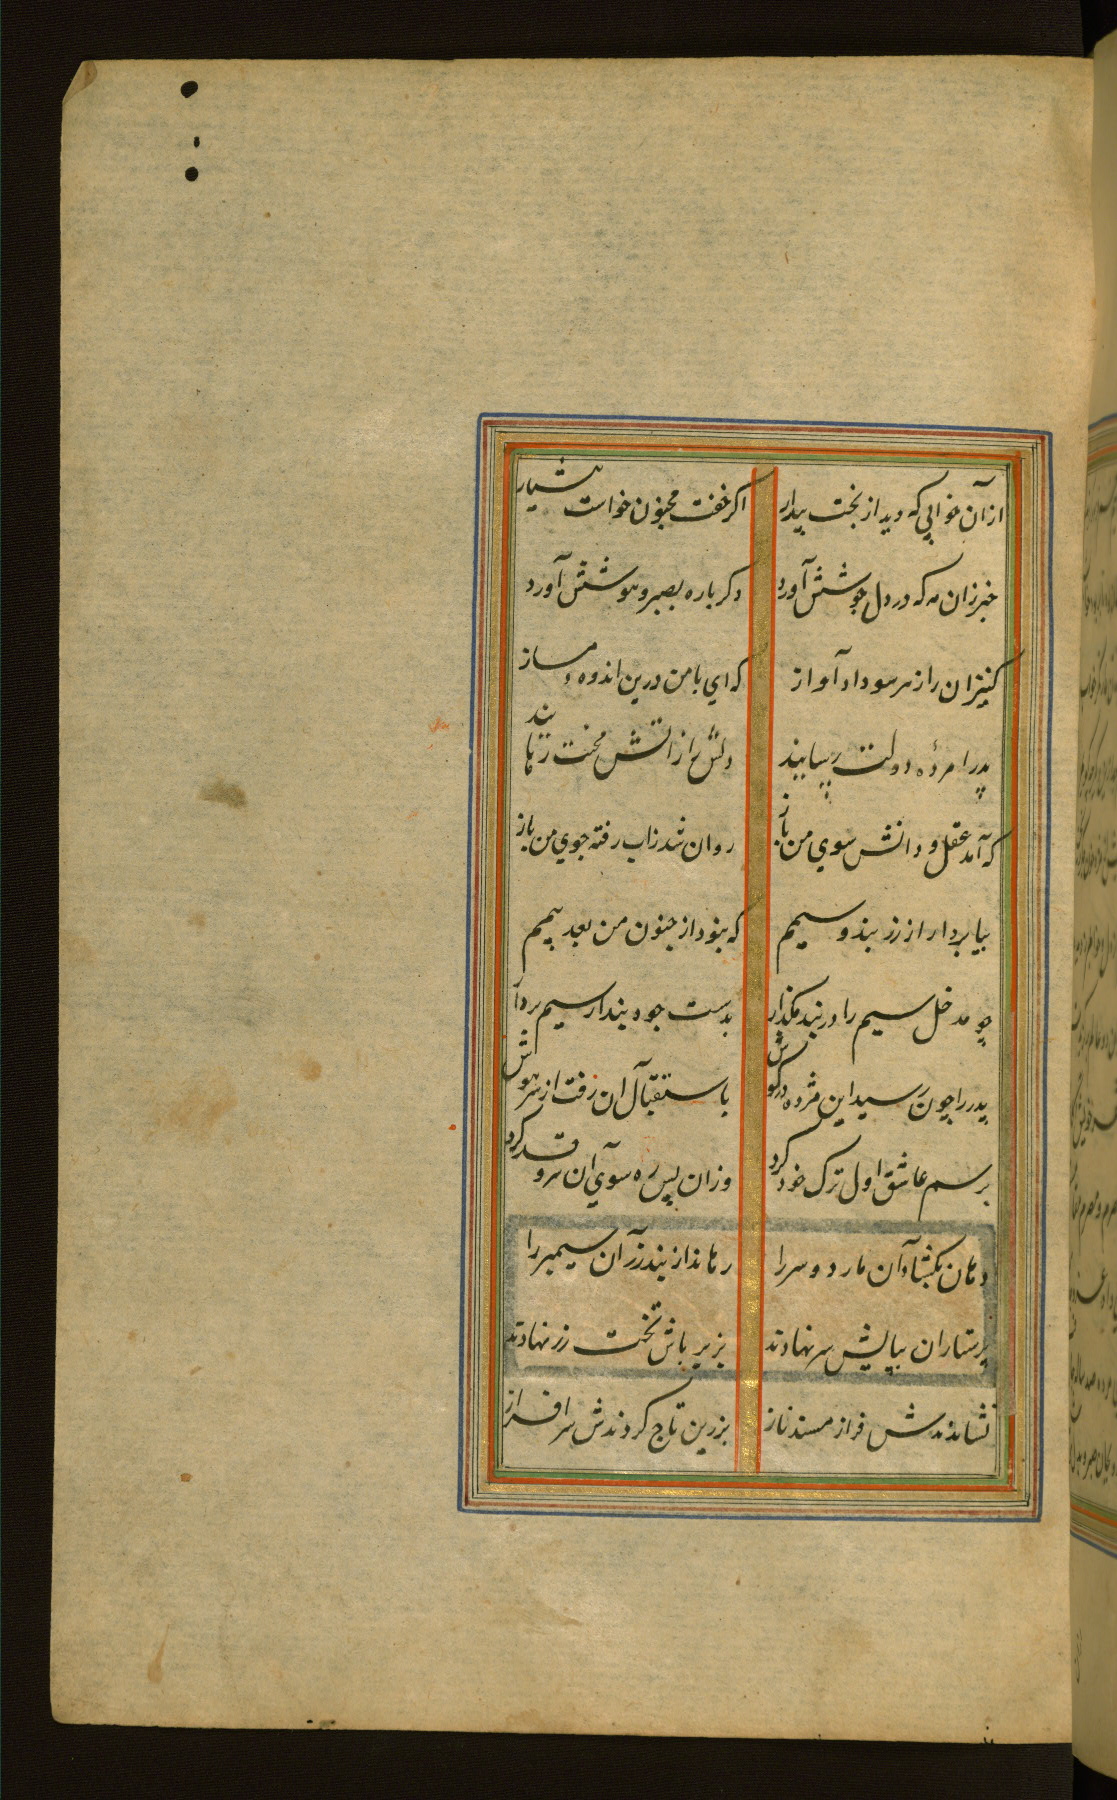 ازآن خوابی که دید از بخت بیدار اکر خفت مجنون خواست هشیار
خبر زان مه که در دل جوشش آورد دکر باره بصبر و هوشش آورد
کنیزان را ز هر سو داد آواز که ای با من درین اندوه دمساز
پدر را مژده دولت رسانید دلش را ز آتش محنت رهانید
که آمد عقل و دانش سوی من باز روان شد زاب رفته جوی من باز
بیا بردار از زر بند و سیمم که نبود از جنون من بعد بیمم
چو مدخل سیم را در بند مکذار بدست جود بند از سیم بردار
پدر را چون رسید این مژده در کوش باستقبال آن رفت از سر هوش
برسم عاشق اول ترک خود کرد وزان پس ره سوی آن سرو قد کرد
دهان بکشاد آن مار دو سر را رهاند از بند زر آن سیمبر را
پرستاران بپایش سر نهادند بزیر پاش تخت زر نهادند
نشاندندش فراز مسند ناز بزرین تاج کردندش سرافراز